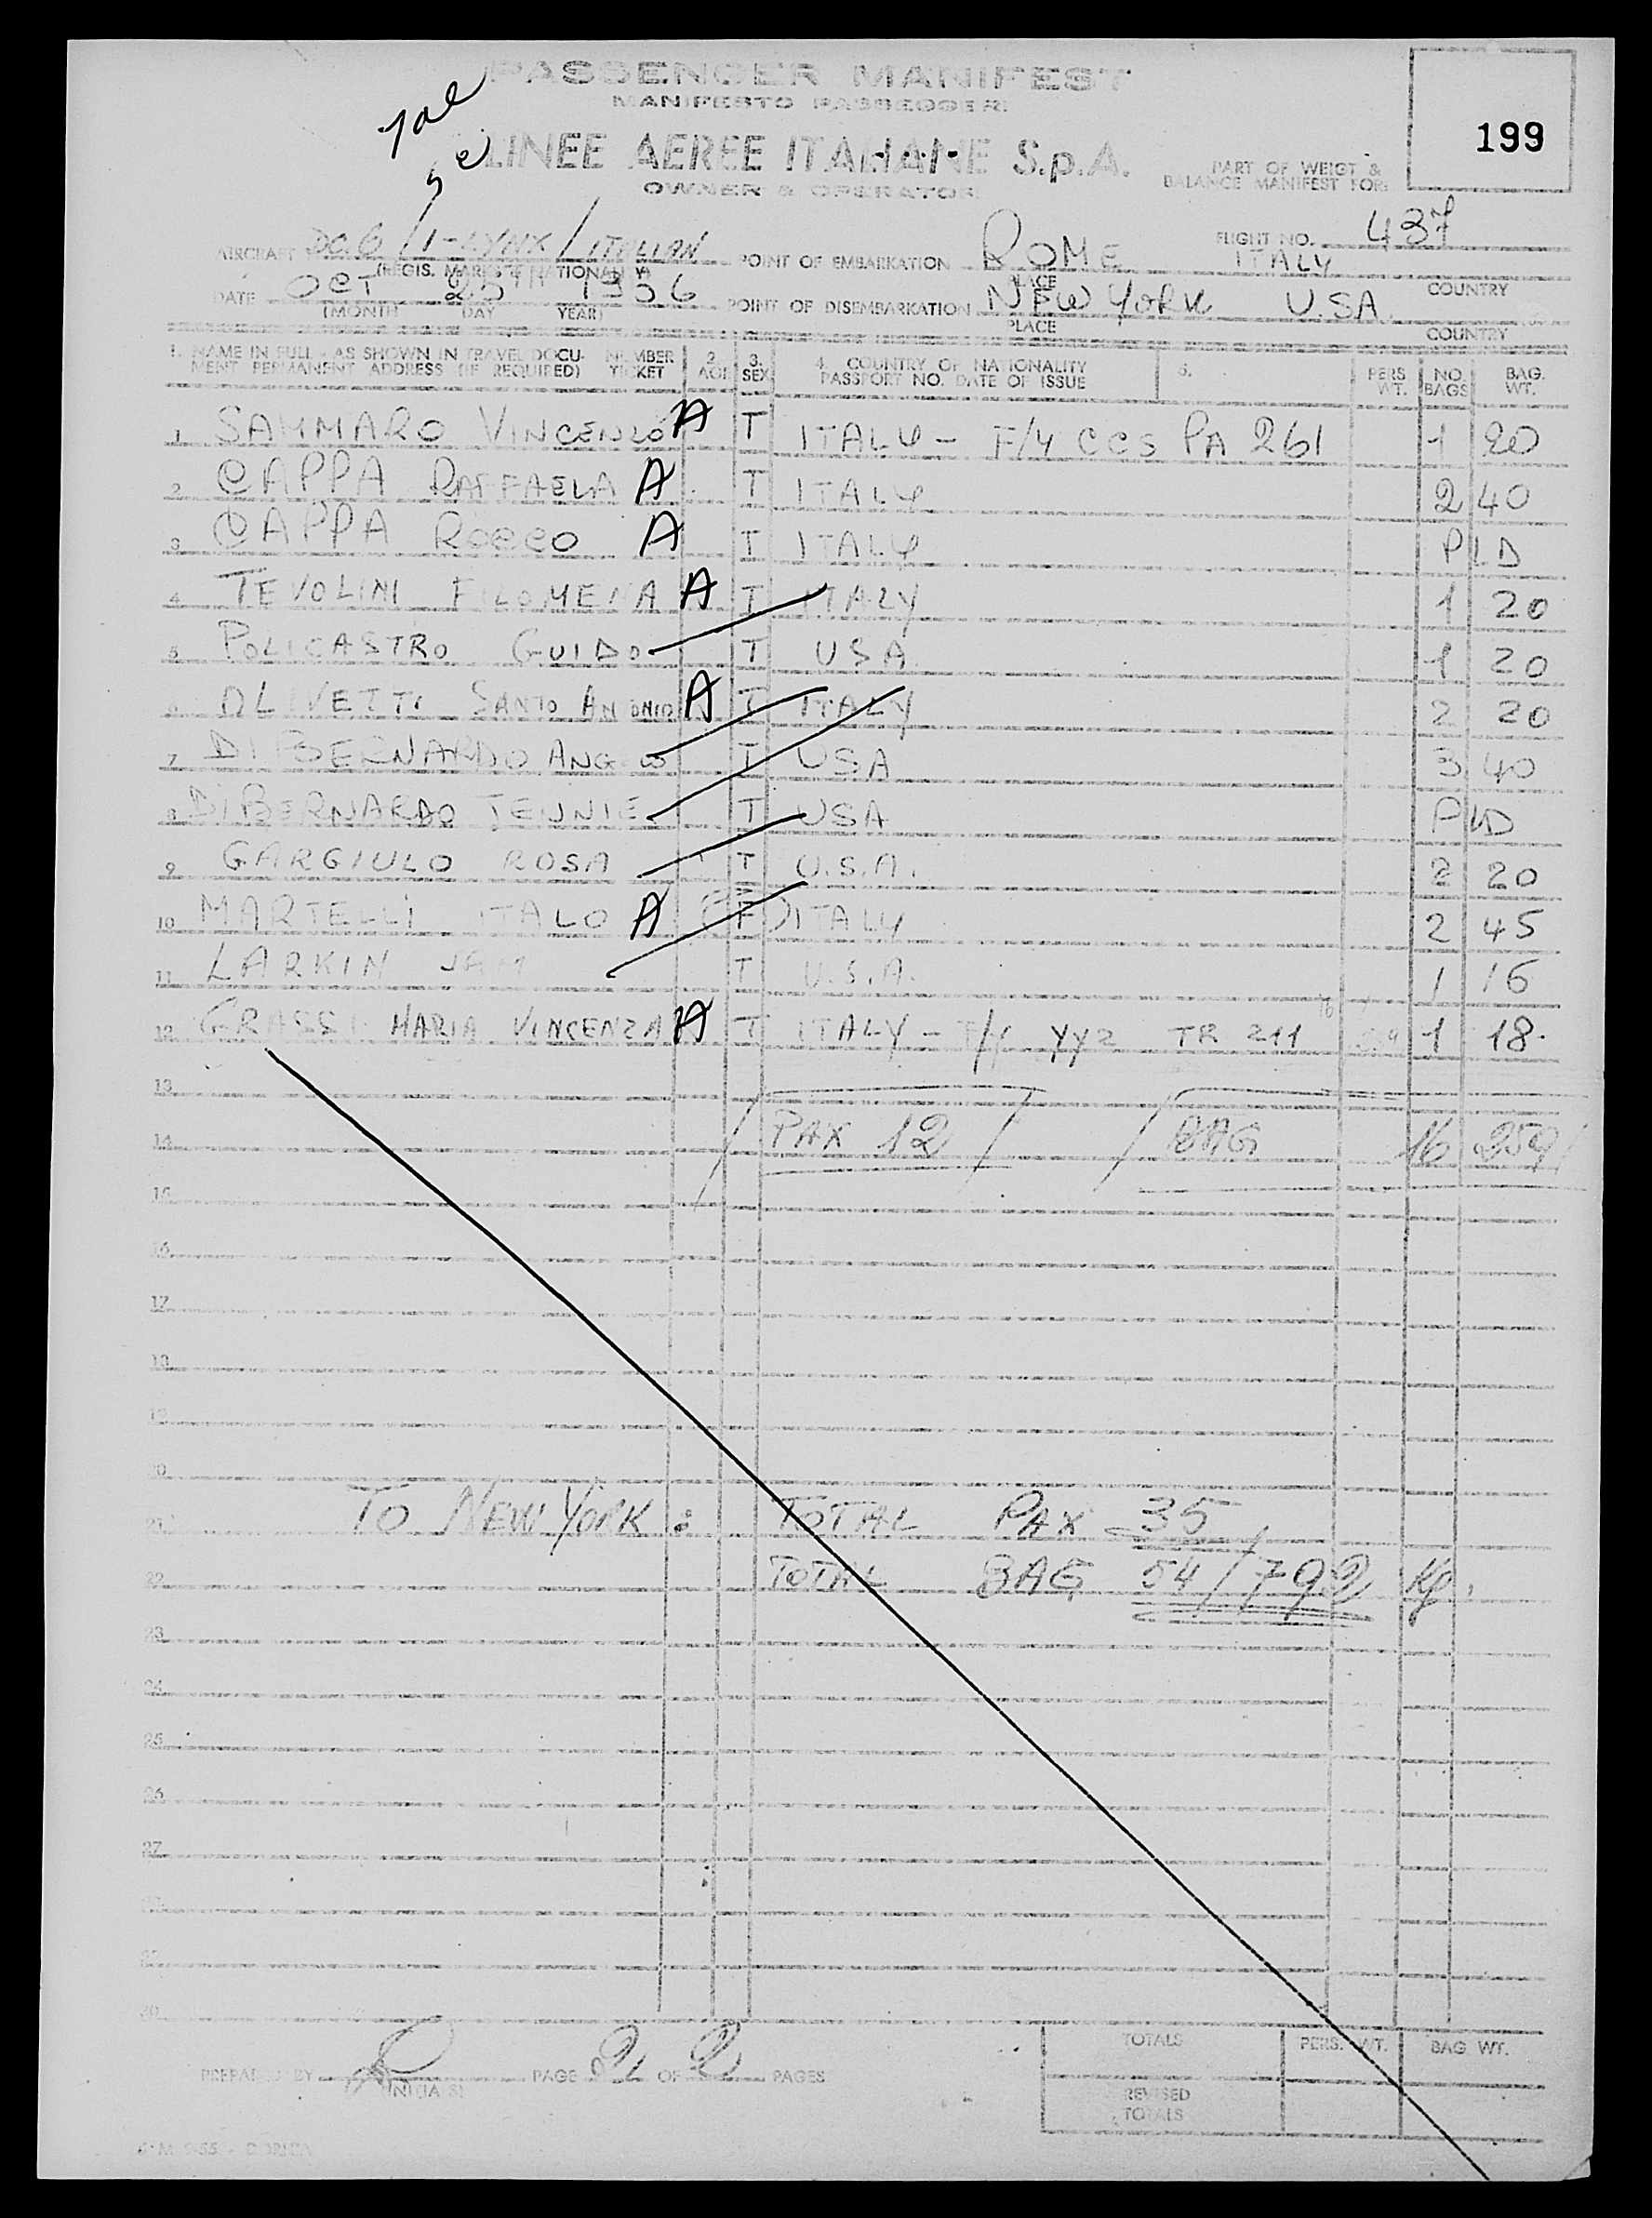 PASSENGER MANIFEST
MANIFESTO PASSEGGERI
LINEE AEREE ITALIANE S.p.A.
OWNER & OPERATOR
199
PART OF WEIGT &
BALANCE MANIFEST FOR:
AIRCRAFT DC.6 / I-LYNX / ITALIAN POINT OF EMBARKATION ROME ITALY FLIGHT NO. 437
(REGIS. MARKS & NATIONALITY) PLACE COUNTRY
DATE OCT 25TH 1956 POINT OF DISEMBARKATION NEW YORK U.SA.
(MONTH DAY YEAR) PLACE COUNTRY
1. NAME IN FULL - AS SHOWN IN TRAVEL DOCU- NUMBER 2. 3. 4. COUNTRY OF NATIONALITY PERS NO. BAG.
MENT PERMANENT ADDRESS (IF REQUIRED) TICKET AGE SEX PASSPORT NO. DATE OF ISSUE WT. BAGS WT.
1 SAMMARO VINCENZO A T ITALY - F/Y CCS PA 261 1 20
2 CAPPA RAFFAELA A T ITALY 2 40
3 CAPPA ROCCO A T ITALY PLD
4 TEVOLINI FILOMENA A T ITALY 1 20
5 POLICASTRO GUIDO T USA 1 20
6 OLIVETTI SANTO ANTONIO A T ITALY 2 20
7 DI BERNARDO T USA 3 40
8 DI BERNARDO JENNIE T USA PLD
9 GARGIULO ROSA T U.S.A. 2 20
10 MARTELLI ITALO A F ITALY 2 45
11 LARKIN T U.S.A. 1 16
12 GRASSI MARIA VINCENZA A T ITALY - F/Y YYZ TR 211 1 18
13
14 / PAX 12 / / BAG 16 259 /
15
16
17
18
19
20
21 TO NEW YORK : TOTAL PAX 35
22 TOTAL BAG 54/792 Kg.
23
24
25
26
27
TOTALS PERS. WT. BAG WT.
PREPARED BY PAGE 2 OF 2 PAGES
(INITIALS)
REVISED
TOTALS